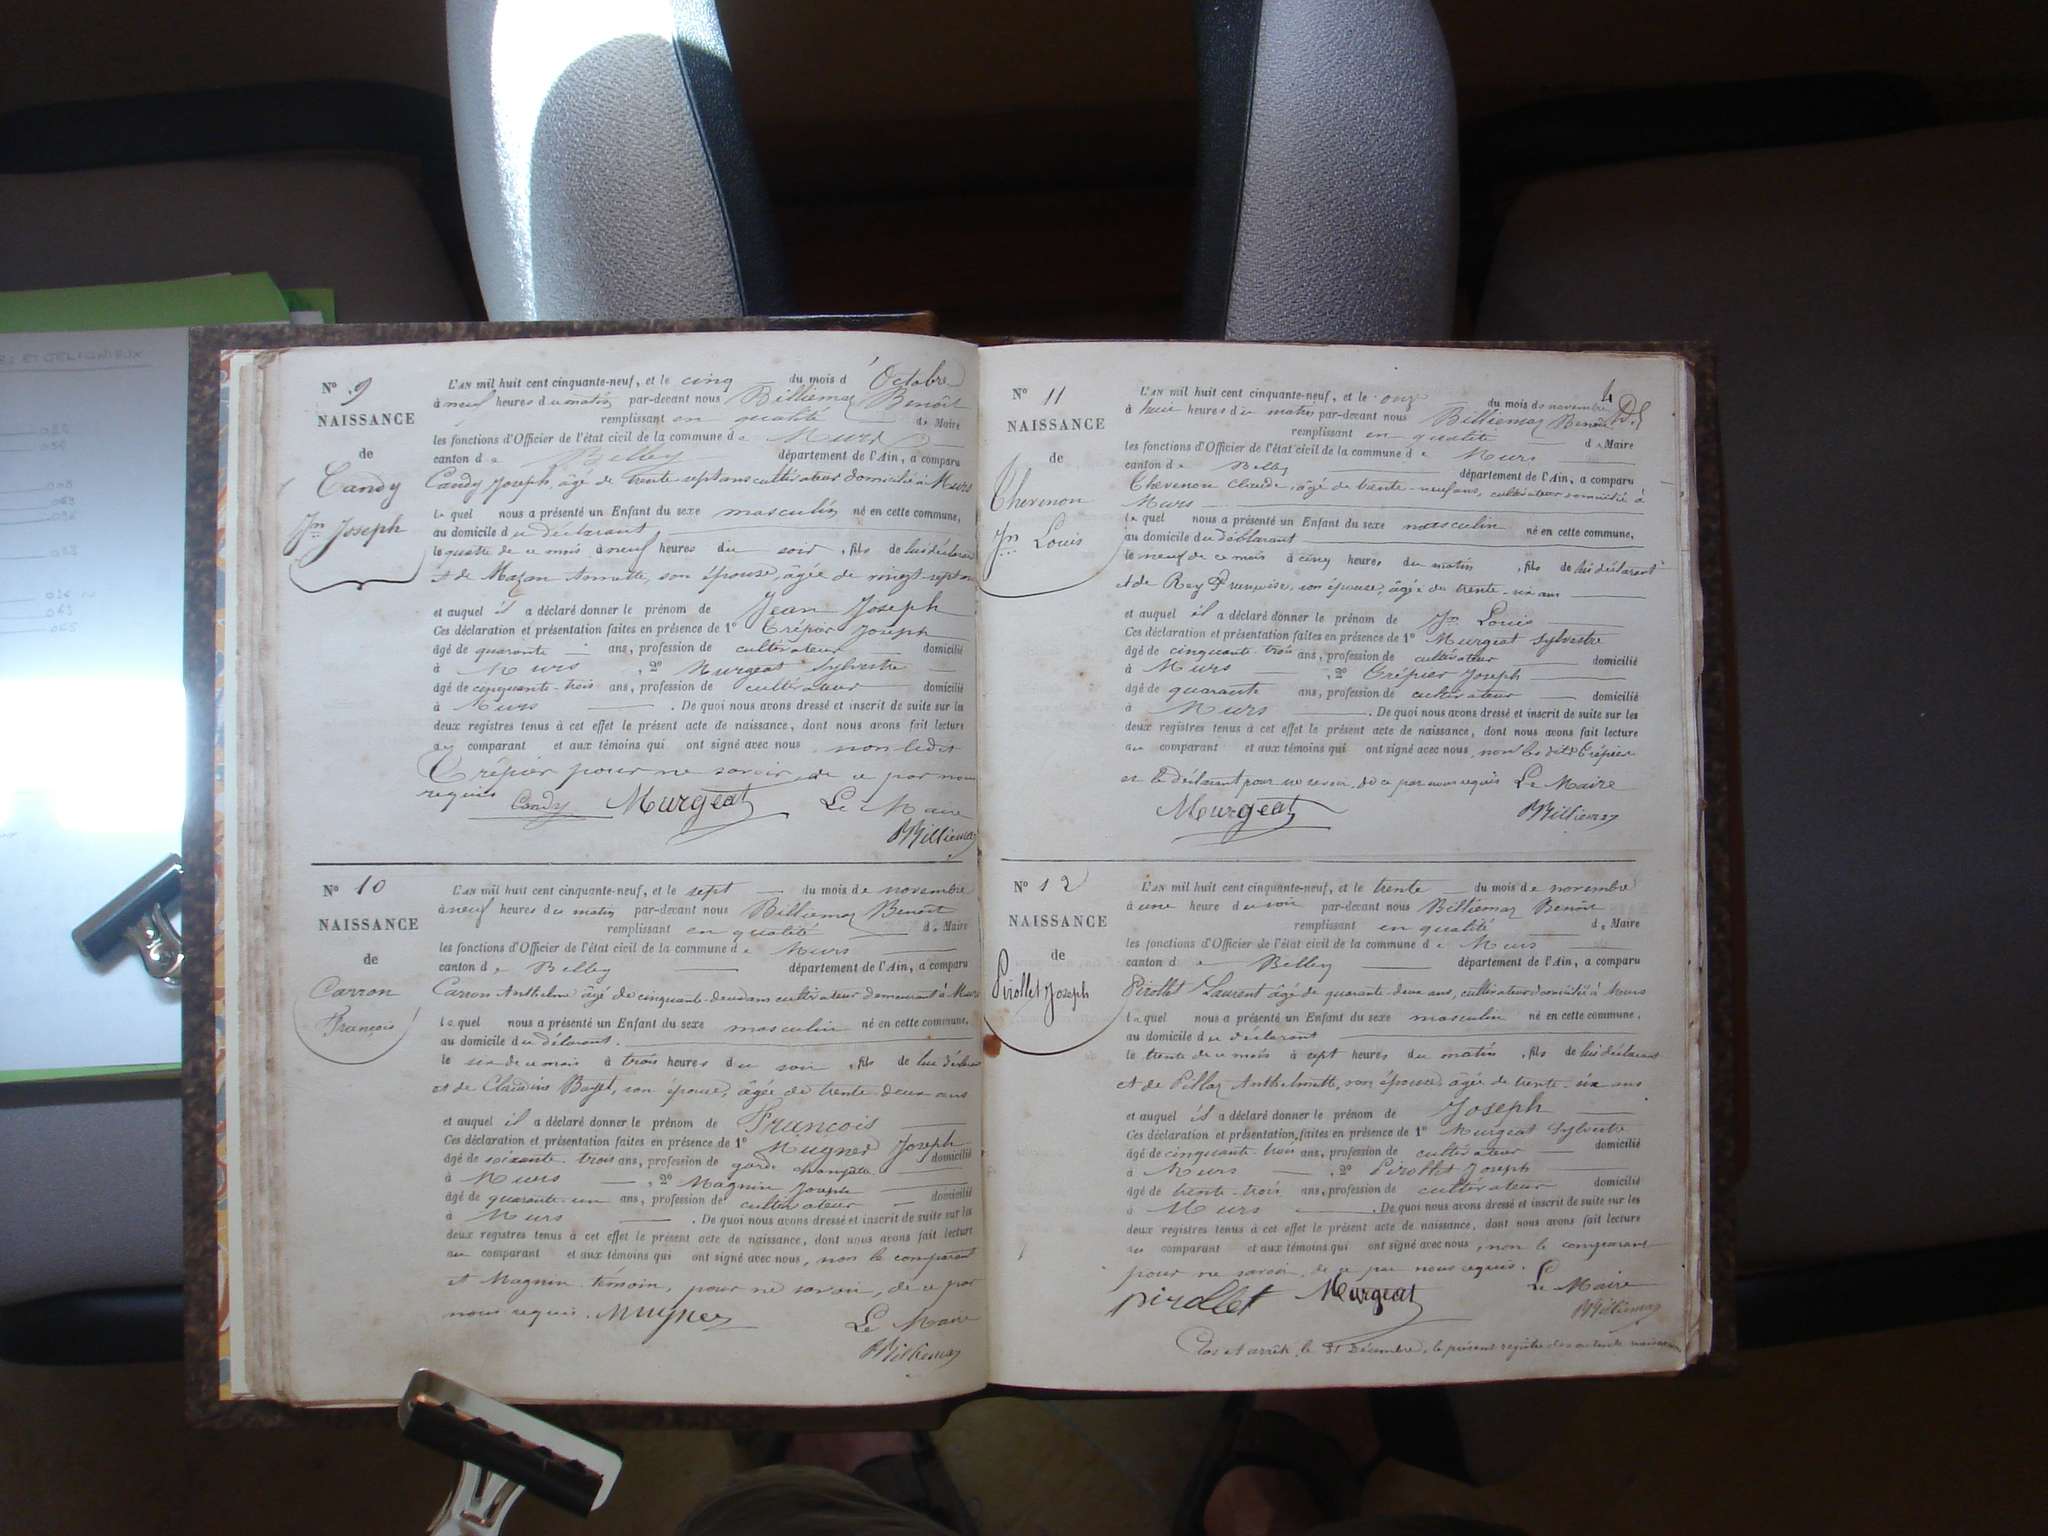 N° 9
NAISSANCE
de
Candy
Jn Joseph
L'AN mil huit cent cinquante-neuf, et le cinq du mois d'Octobre
à neuf heures du matin par-devant nous Billiemaz Benoît
remplissant en qualité de Maire
les fonctions d'Officier de l'état civil de la commune de Murs
canton de Belley département de l'Ain, a comparu
Candy Joseph, âgé de trente-sept ans cultivateur domicilié à Murs
lequel nous a présenté un Enfant du sexe masculin né en cette commune,
au domicile du déclarant
le quatre de ce mois à neuf heures du soir, fils de lui déclarant
et de Mazan Annette, son épouse, âgée de vingt-sept ans
et auquel il a déclaré donner le prénom de Jean Joseph
Ces déclaration et présentation faites en présence de 1° Crépier Joseph
âgé de quarante ans, profession de cultivateur domicilié
à Murs, 2° Murgeat Sylvestre
âgé de cinquante-trois ans, profession de cultivateur domicilié
à Murs. De quoi nous avons dressé et inscrit de suite sur les
deux registres tenus à cet effet le présent acte de naissance, dont nous avons fait lecture
au comparant et aux témoins qui ont signé avec nous, non ledit
Crépier pour ne savoir, de ce par nous
requis Candy Murgeat Le Maire
BBilliemaz
N° 10
NAISSANCE
de
Carron
François
L'AN mil huit cent cinquante-neuf, et le sept du mois de novembre
à neuf heures du matin par-devant nous Billiemaz Benoît
remplissant en qualité de Maire
les fonctions d'Officier de l'état civil de la commune de Murs
canton de Belley département de l'Ain, a comparu
Carron Anthelme âgé de cinquante-deux ans cultivateur demeurant à Murs
lequel nous a présenté un Enfant du sexe masculin né en cette commune,
au domicile du déclarant.
le six de ce mois à trois heures du soir, fils de lui déclarant
et de Claudine son épouse, âgée de trente-deux ans
et auquel il a déclaré donner le prénom de François
Ces déclaration et présentation faites en présence de 1° Mugner Joseph
âgé de soixante-trois ans, profession de garde champêtre domicilié
à Murs, 2° Magnin Joseph
âgé de quarante-un ans, profession de cultivateur domicilié
à Murs. De quoi nous avons dressé et inscrit de suite sur les
deux registres tenus à cet effet le présent acte de naissance, dont nous avons fait lecture
au comparant et aux témoins qui ont signé avec nous, non le comparant
et Magnin témoin, pour ne savoir, de ce par
nous requis. Mugner Le Maire
BBilliemaz
4
N° 11
NAISSANCE
de
Thevenon
Jn Louis
L'AN mil huit cent cinquante-neuf, et le onze du mois de novembre
à huit heures du matin par-devant nous Billiemaz Benoît
remplissant en qualité de Maire
les fonctions d'Officier de l'état civil de la commune de Murs
canton de Belley département de l'Ain, a comparu
Thevenon Claude, âgé de trente-neuf ans, cultivateur domicilié à
Murs
lequel nous a présenté un Enfant du sexe masculin né en cette commune,
au domicile du déclarant
le neuf de ce mois à cinq heures du matin, fils de lui déclarant
et de Rey Françoise, son épouse, âgée de trente-six ans
et auquel il a déclaré donner le prénom de Jn Louis
Ces déclaration et présentation faites en présence de 1° Murgeat Sylvestre
âgé de cinquante-trois ans, profession de cultivateur domicilié
à Murs, 2° Crépier Joseph
âgé de quarante ans, profession de cultivateur domicilié
à Murs. De quoi nous avons dressé et inscrit de suite sur les
deux registres tenus à cet effet le présent acte de naissance, dont nous avons fait lecture
au comparant et aux témoins qui ont signé avec nous, non les dits Crépier
et le déclarant pour ne savoir, de ce par nous requis Le Maire
Murgeat BBilliemaz
N° 12
NAISSANCE
de
Pirollet Joseph
L'AN mil huit cent cinquante-neuf, et le trente du mois de novembre
à une heure du soir par-devant nous Billiemaz Benoît
remplissant en qualité de Maire
les fonctions d'Officier de l'état civil de la commune de Murs
canton de Belley département de l'Ain, a comparu
Pirollet Laurent âgé de quarante-deux ans, cultivateur domicilié à Murs
lequel nous a présenté un Enfant du sexe masculin né en cette commune,
au domicile du déclarant
le trente de ce mois à sept heures du matin, fils de lui déclarant
et de Pillaz Anthelmette, son épouse, âgée de trente-six ans
et auquel il a déclaré donner le prénom de Joseph
Ces déclaration et présentation faites en présence de 1° Murgeat Sylvestre
âgé de cinquante-trois ans, profession de cultivateur domicilié
à Murs, 2° Pirollet Joseph
âgé de trente-trois ans, profession de cultivateur domicilié
à Murs. De quoi nous avons dressé et inscrit de suite sur les
deux registres tenus à cet effet le présent acte de naissance, dont nous avons fait lecture
au comparant et aux témoins qui ont signé avec nous, non le comparant
pour ne savoir, de ce par nous requis. Le Maire
pirollet Murgeat BBilliemaz
Clos et arrêté, le 31 Décembre, le présent registre des actes de naissance